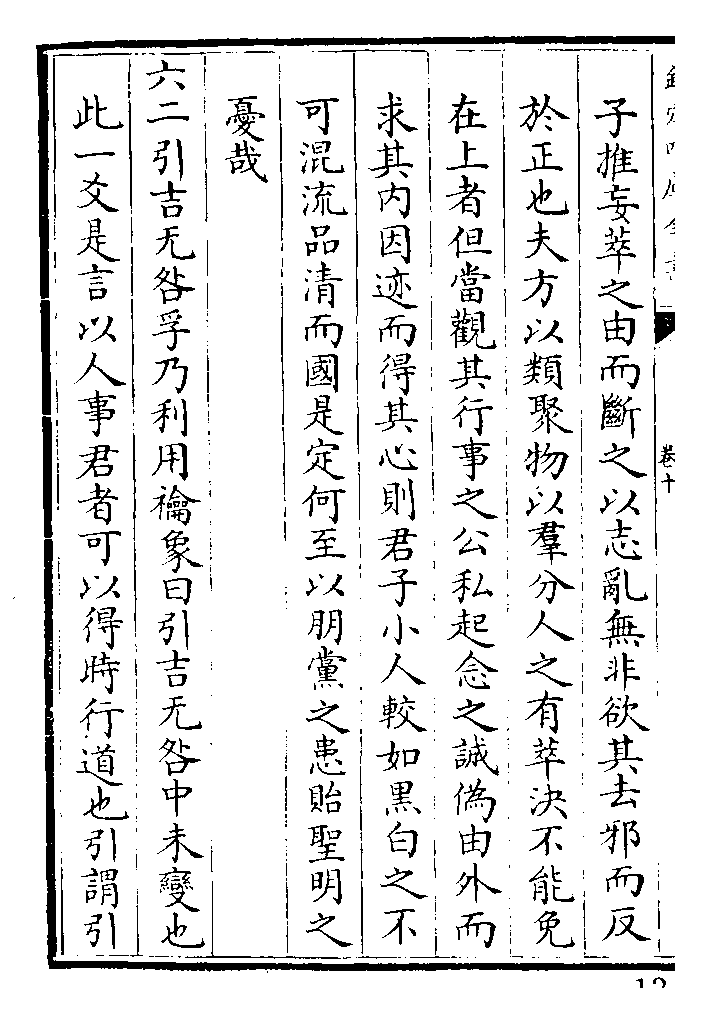 欽定四庫全書
卷十
子推妄萃之由而斷之以志亂無非欲其去邪而反
於正也夫方以類聚物以羣分人之有萃決不能免
在上者但當觀其行事之公私起念之誠偽由外而
求其内因迹而得其心則君子小人較如黑白之不
可混流品清而國是定何至以朋黨之患貽聖明之
憂哉
六二引吉无咎孚乃利用禴象曰引吉无咎中未變也
此一爻是言以人事君者可以得時行道也引謂引